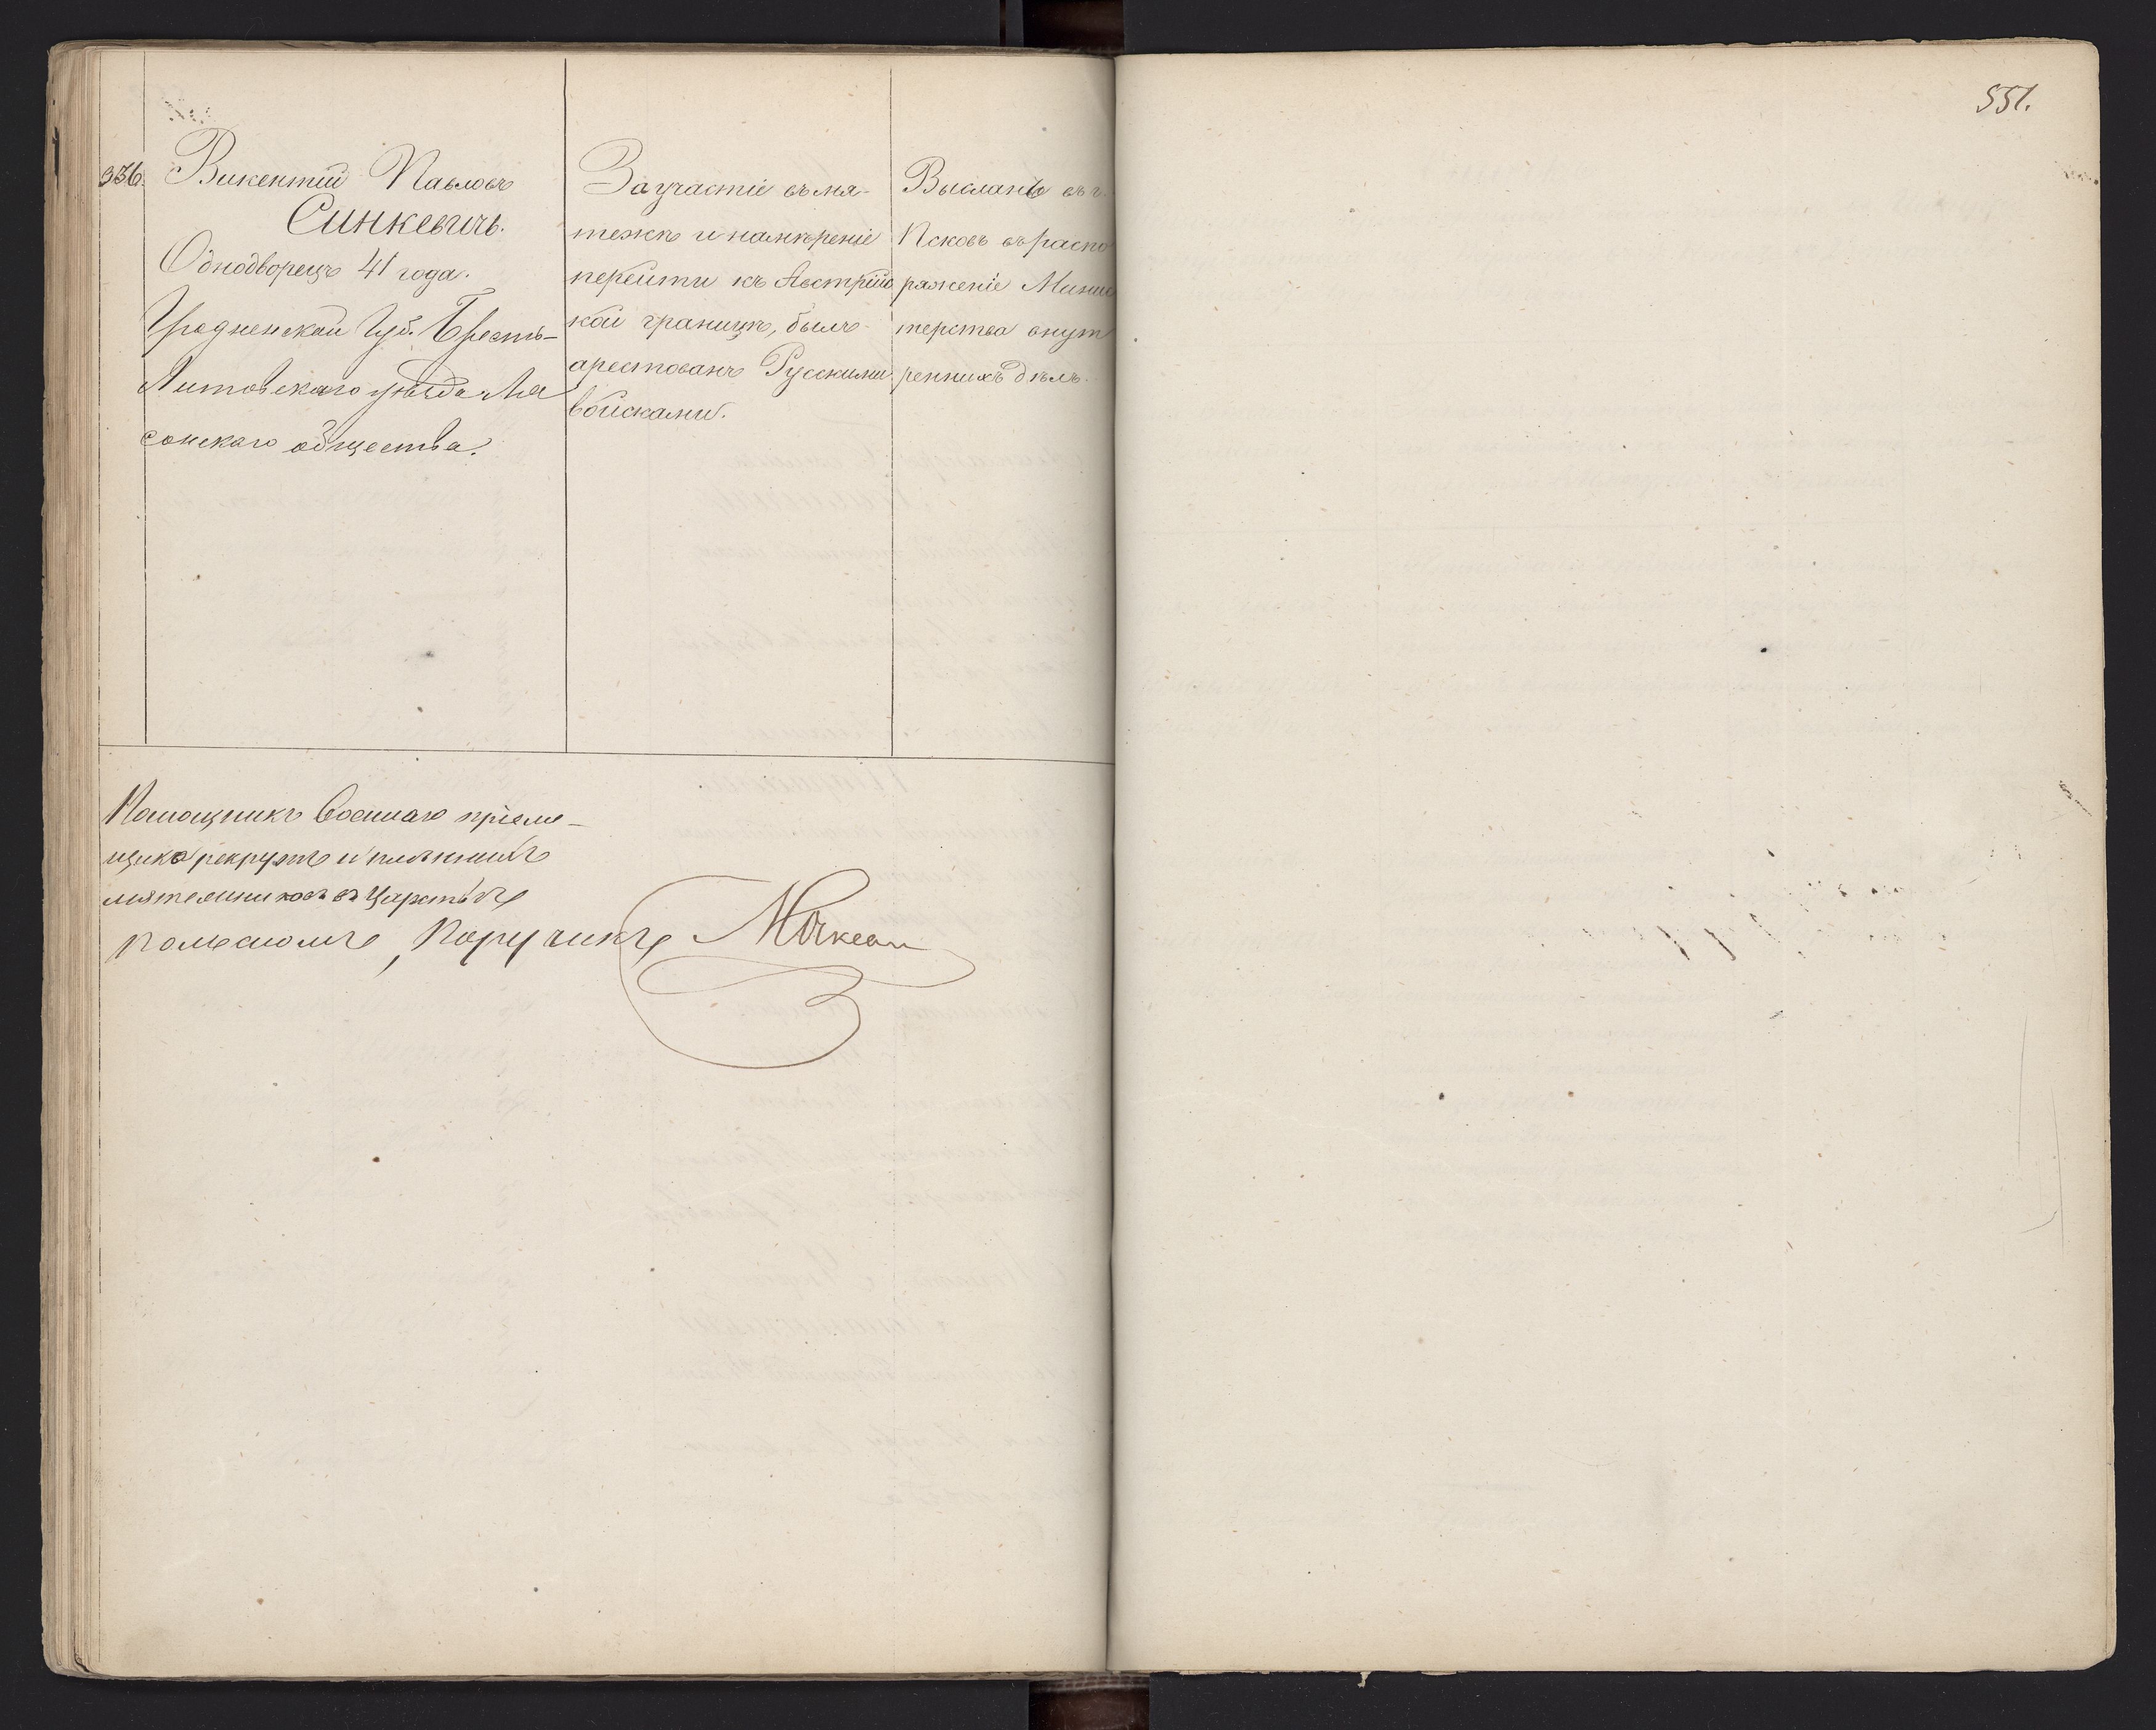 551.
336.
Викентій Павловъ
Синкевичъ.
Однодворецъ 41 года.
Гродненской Губ. Брестъ-
Литовскаго уѣзда Ма
сонскаго общества.
За участіе въ мя-
тежѣ и намѣреніе
перейти къ Австрійс
кой границѣ, былъ
арестованъ Русскими
войсками.
Высланъ въ г.
Псковъ въ распо
ряженіе Минис
терства внут
реннихъ дѣлъ.
Помощникъ Военнаго пріем-
щика рекрутъ и плѣнныхъ
мятежниковъ въ Царствѣ
Польскомъ, Поручикъ